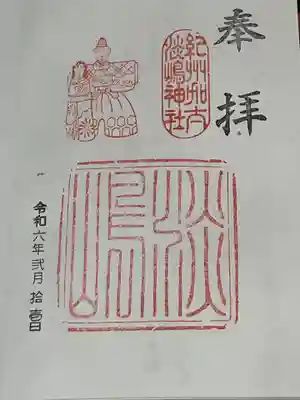 奉拝
紀州加太
淡嶋神社
淡嶋
令和六年弐月拾壱日